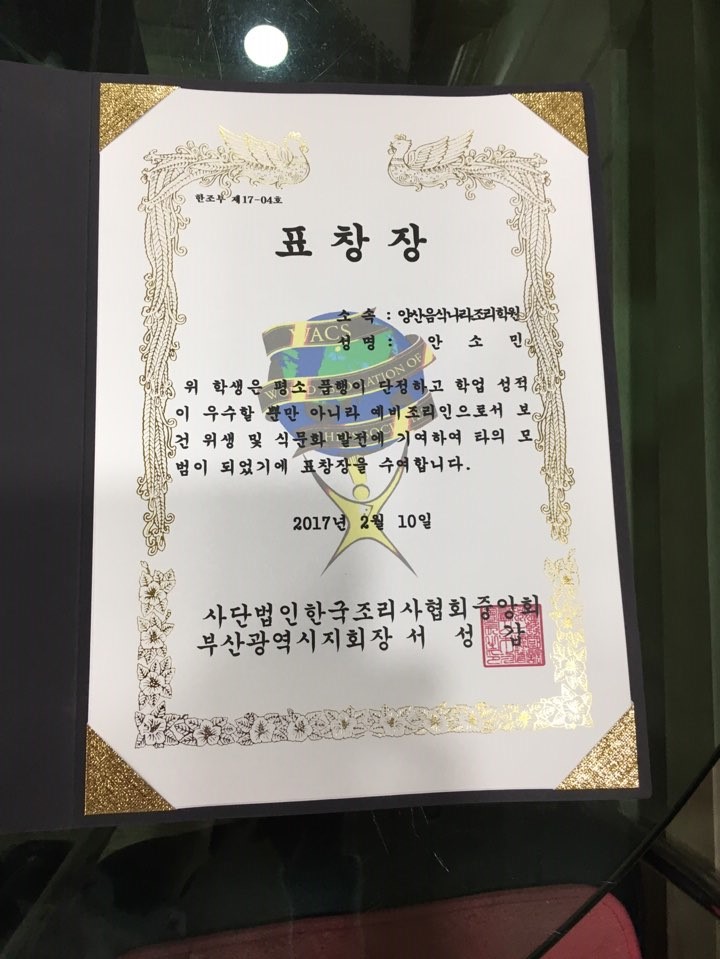 한조부 제17-04호
표창장
소 속 : 양산음식나라조리학원
성 명 : 안 소 민
WACS
위 학생은 평소 품행이 단정하고 학업 성적
이 우수할 뿐만 아니라 예비조리인으로서 보
건 위생 및 식문화 발전에 기여하여 타의 모
범이 되었기에 표창장을 수여합니다.
2017년 2월 10일
사단법인한국조리사협회중앙회
부산광역시지회장 서 성 갑